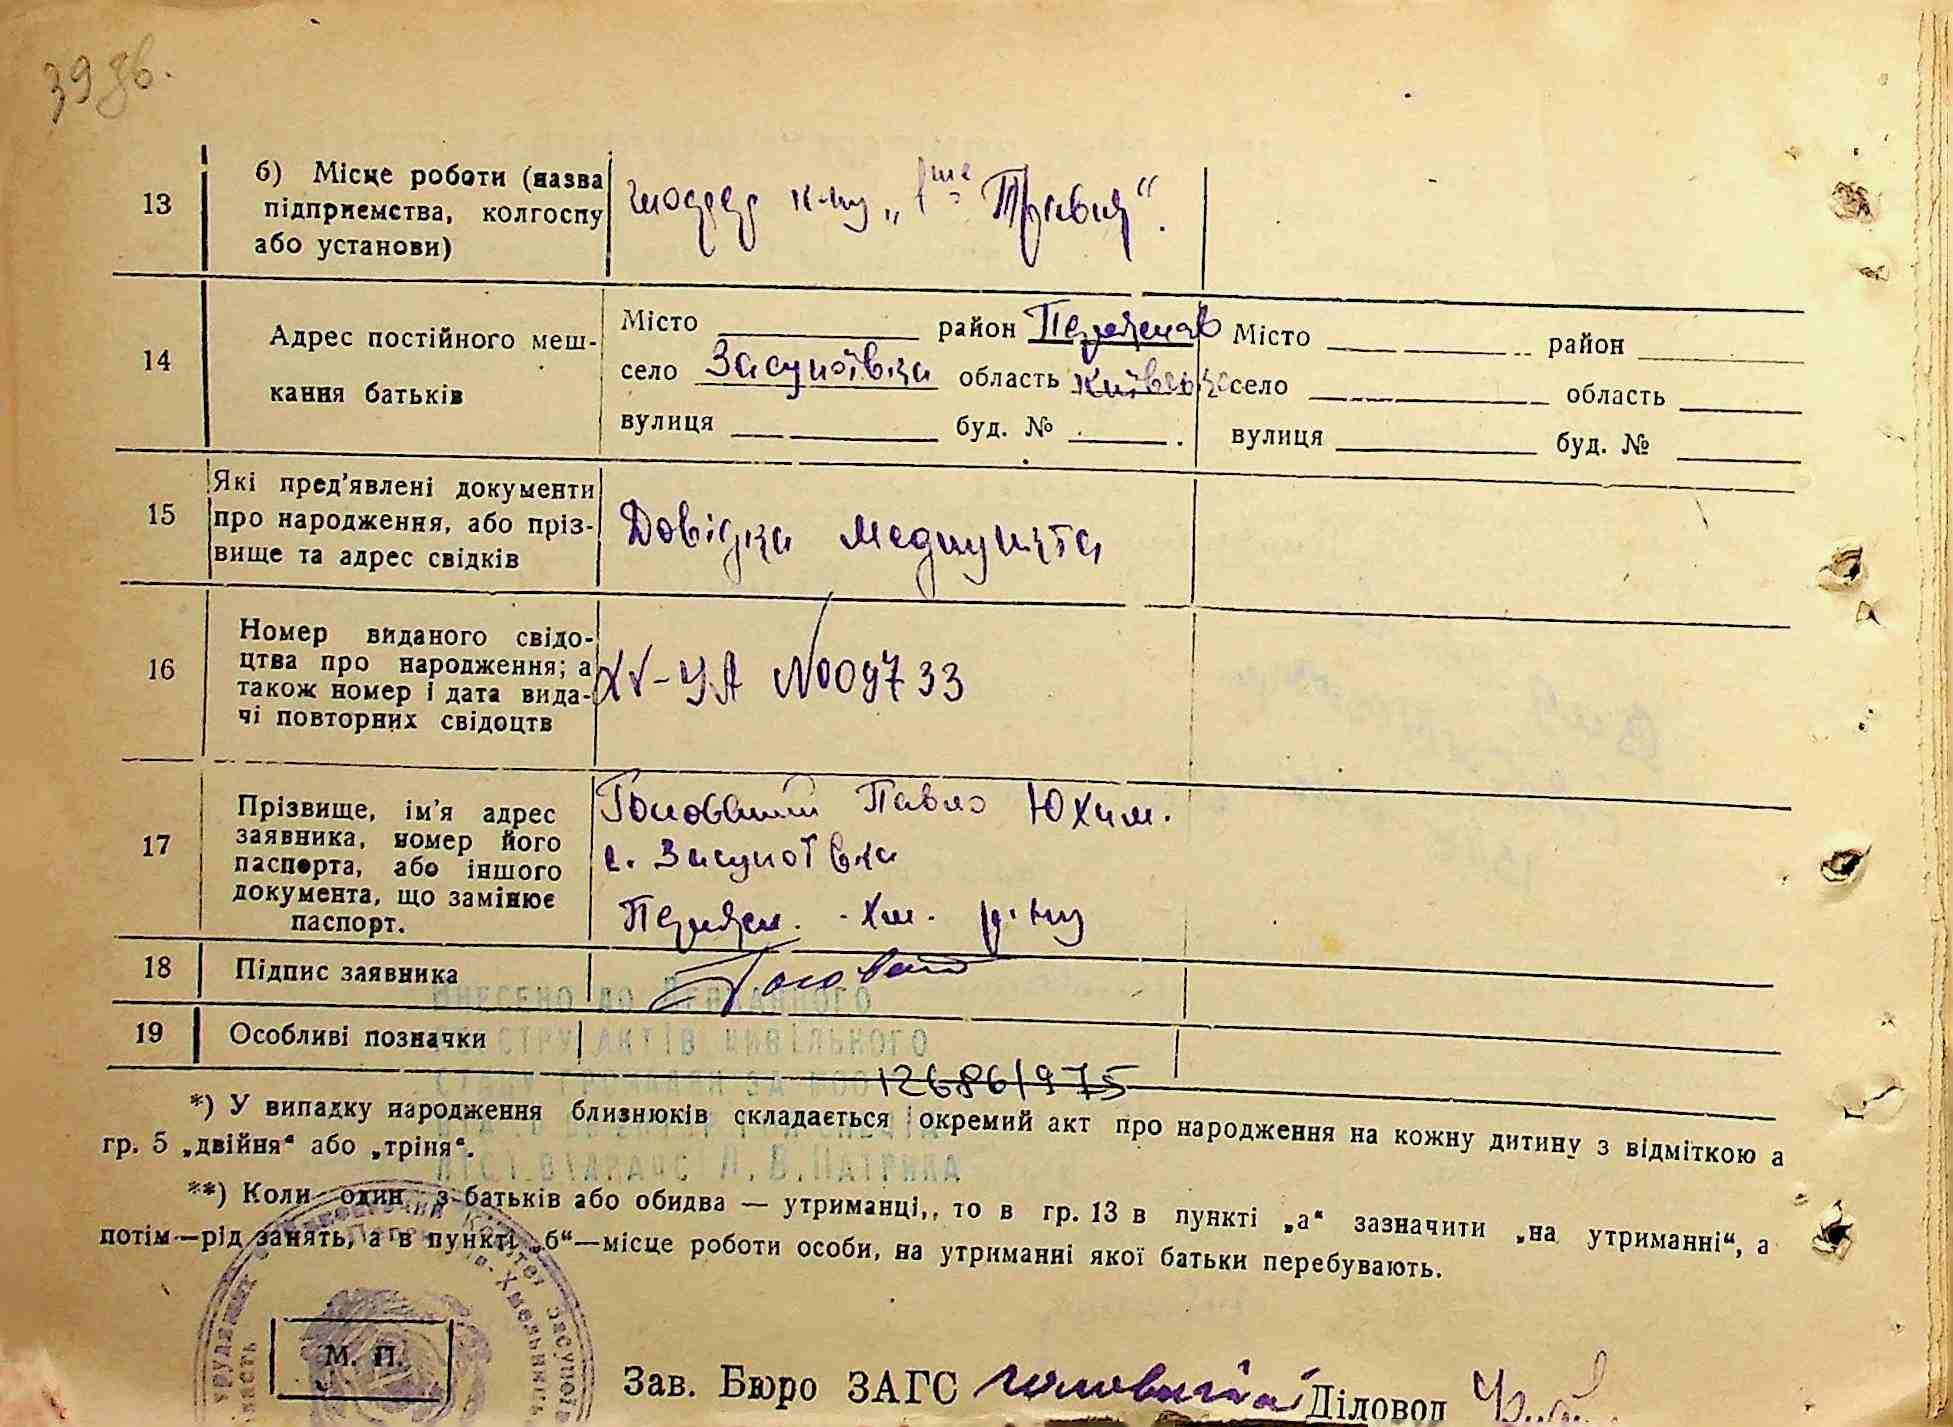 39 зв.
13 б) Місце роботи (назва підприємства, колгоспу або установи) шофер к-пу „1ше Травня“.
14 Адрес постійного меш-
кання батьків
Місто район Переяслав Місто район
село Засупоївка область Київська село область
вулиця буд. № вулиця буд. №
15 Які пред'явлені документи
про народження, або пріз-
вище та адрес свідків
Довідка медпункта
16 Номер виданого свідо-
цтва про народження; а
також номер і дата вида-
чі повторних свідоцтв
XV-УА №009733
17 Прізвище, ім'я адрес
заявника, номер його
паспорта, або іншого
документа, що замінює
паспорт.
Павло Юхим.
с. Засупоївка
Переясл.-Хм. р-ну
18 Підпис заявника
19 Особливі позначки
ВНЕСЕНО ДО ДЕРЖАВНОГО
РЕЄСТРУ АКТІВ ЦИВІЛЬНОГО
СТАНУ ГРОМАДЯН ЗА
126861975
*) У випадку народження близнюків складається окремий акт про народження на кожну дитину з відміткою а
гр. 5 „двійня“ або „тріня“.
**) Коли один з батьків або обидва — утриманці,, то в гр. 13 в пункті „а“ зазначити „на утриманні“, а
потім—рід занять, а в пункті „б“—місце роботи особи, на утриманні якої батьки перебувають.
М. П.
Зав. Бюро ЗАГС Діловод